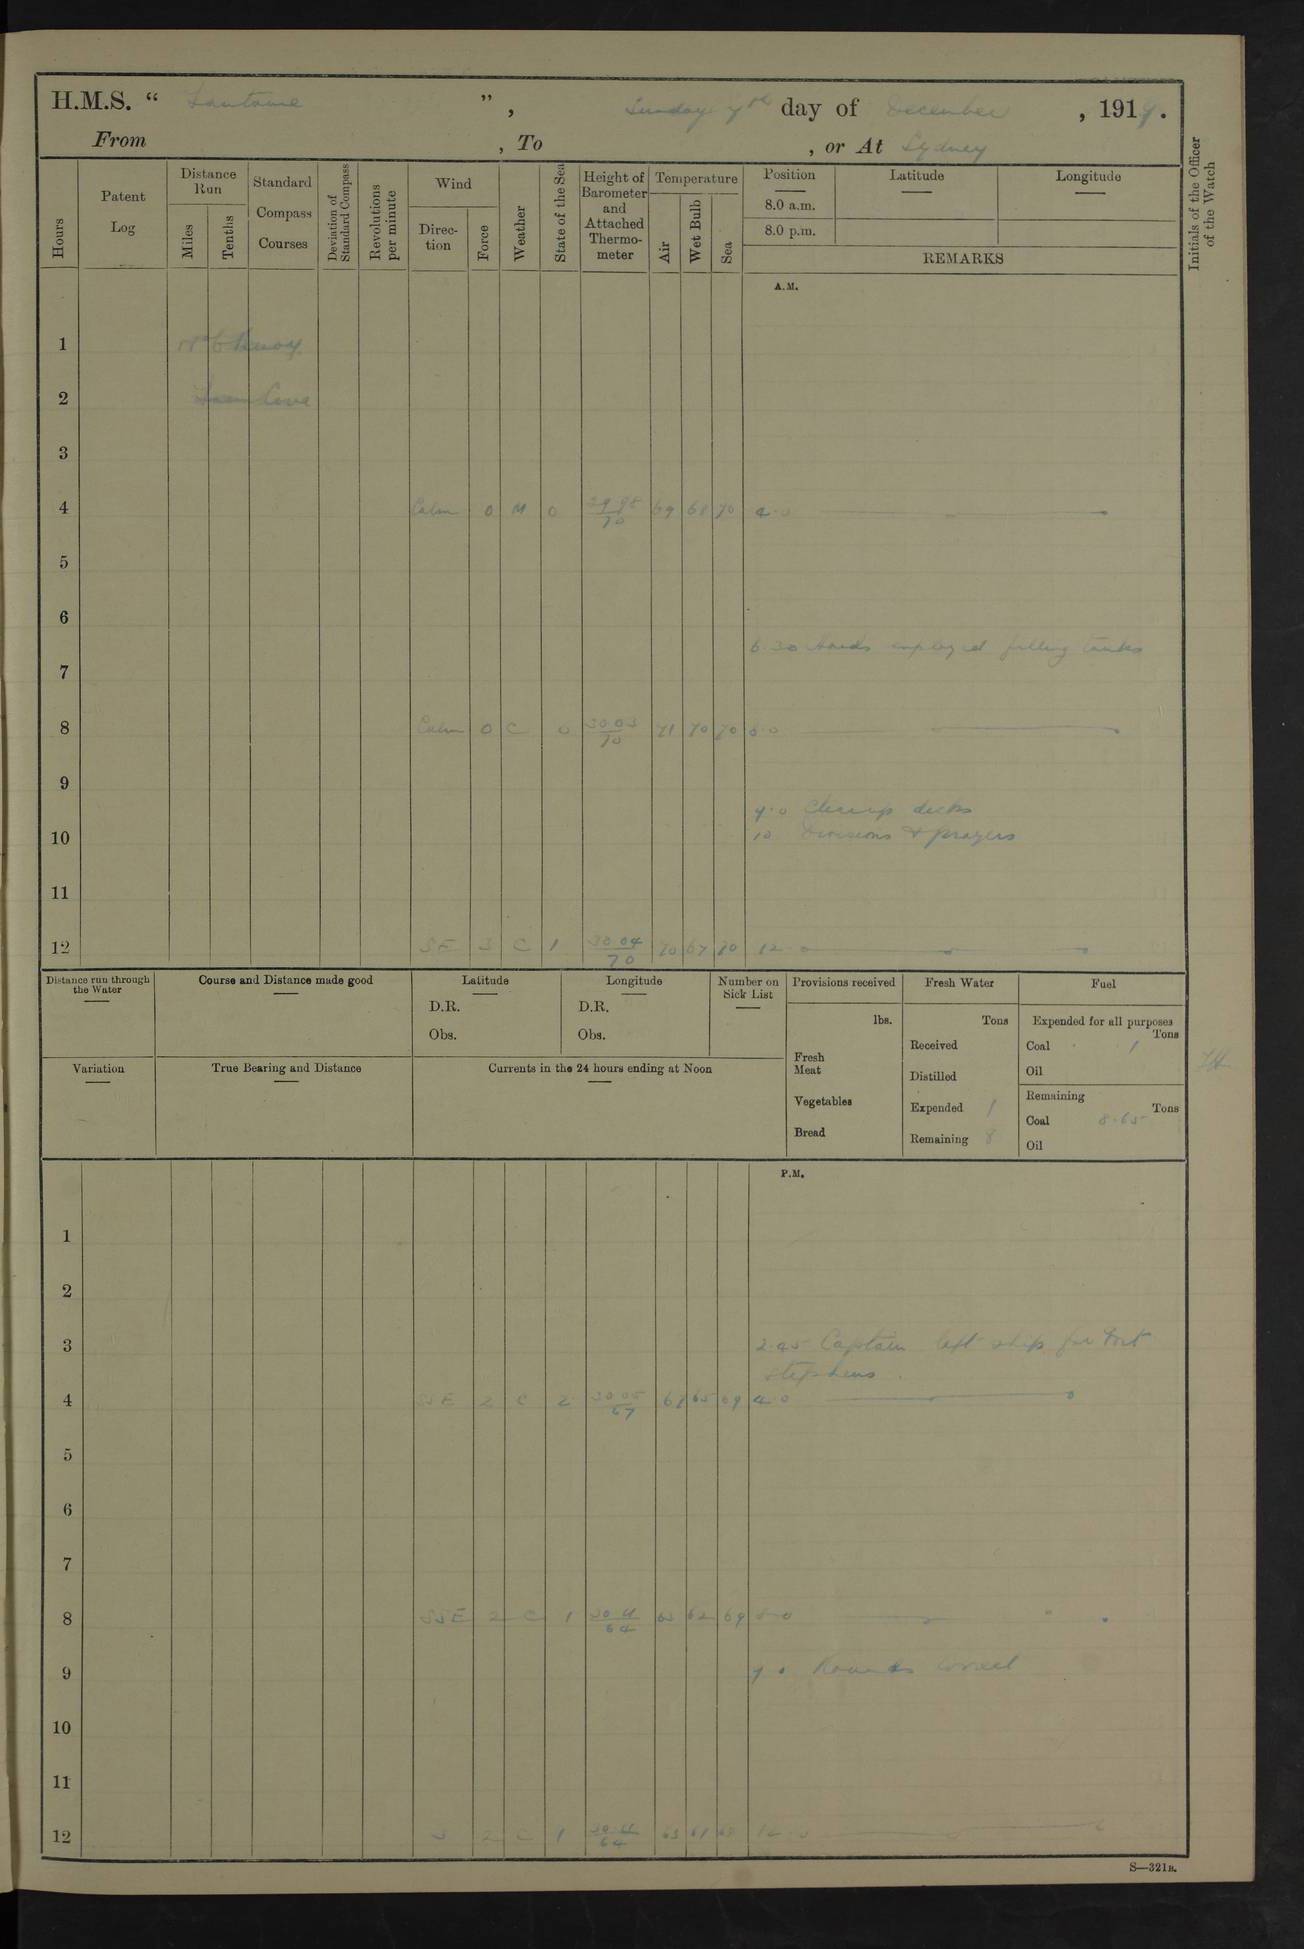 H.M.S. “ Fantome ” , Sunday 7th day of December , 1919.
From , To , or At Sydney
Hours
Patent Log
Distance Run
Miles
Tenths
Standard Compass Courses
Deviation of Standard Compass
Revolutions per minute
Wind
Direc- tion
Force
Weather
State of the Sea
Height of Barometer and Attached Thermo- meter
Temperature
Air
Wet Bulb
Sea
Position
8.0 a.m.
8.0 p.m.
Latitude
Longitude
REMARKS
Initials of the Officer of the Watch
A.M.
1 No 6 Buoy
2 Farm Cove
3
4 Calm 0 M 0 29.98 70 69 68 70 4.0
5
6
6.30 Hands employed filling tanks
7
8 Calm 0 C 0 30.03 70 71 70 70 8.0
9
9.0 Clean up decks
10 10 Divisions & prayers
11
12 SE 3 C 1 30.04 70 70 67 70 12
Distance run through the Water
Course and Distance made good
Latitude
D.R.
Obs.
Longitude
D.R.
Obs.
Number on Sick List
Provisions received
lbs.
Fresh Meat
Vegetables
Bread
Fresh Water
Tons
Received
Distilled
Expended 1
Remaining 8
Fuel
Expended for all purposes
Tons
Coal 1
Oil
Remaining
Tons
Coal 8.65
Oil
Variation
True Bearing and Distance
Currents in the 24 hours ending at Noon
P.M.
1
2
3 2.45 Captain left ship for Port
Stephens.
4 SSE 2 C 2 30.05 67 67 65 69 4.0
5
6
7
8 SSE 2 C 1 30.11 64 63 62 69 8.0
9 9.0 Rounds Correct
10
11
12 S 2 C 1 30.11 64 63 61 12.0
S—321B.